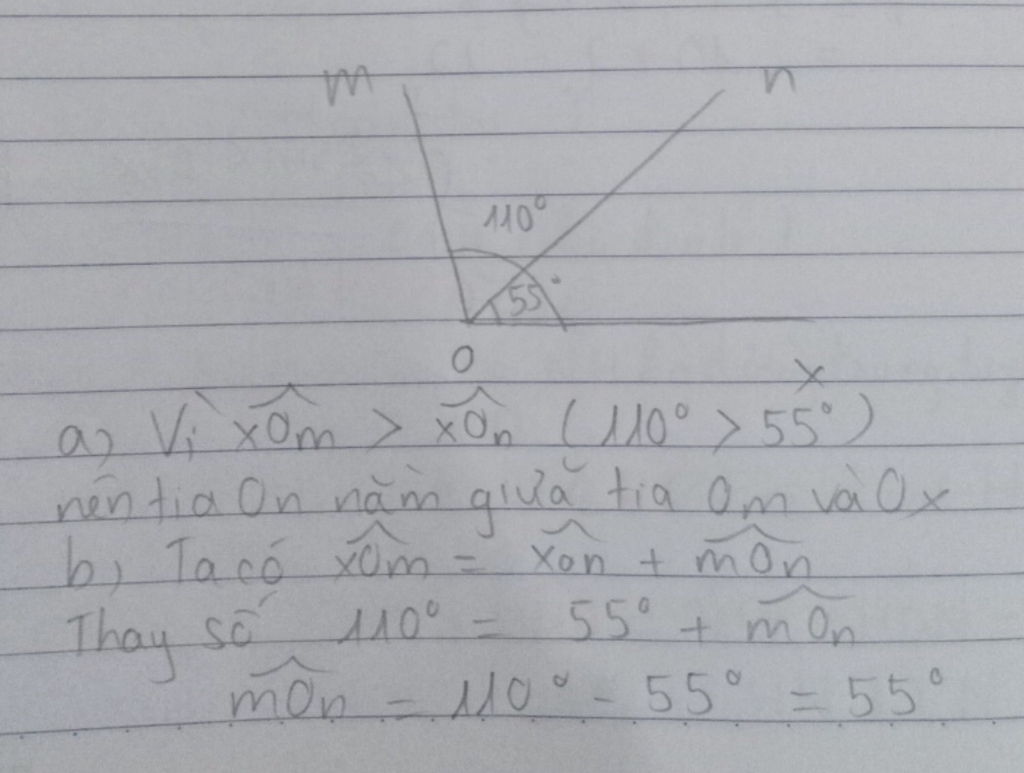 m n
110°
55°
O
x
a) Vì $\widehat{xOm}$ > $\widehat{xOn}$ (110° > 55°)
nên tia On nằm giữa tia Om và Ox
b) Ta có $\widehat{xOm}$ = $\widehat{xOn}$ + $\widehat{mOn}$
Thay số 110° = 55° + $\widehat{mOn}$
$\widehat{mOn}$ = 110° - 55° = 55°